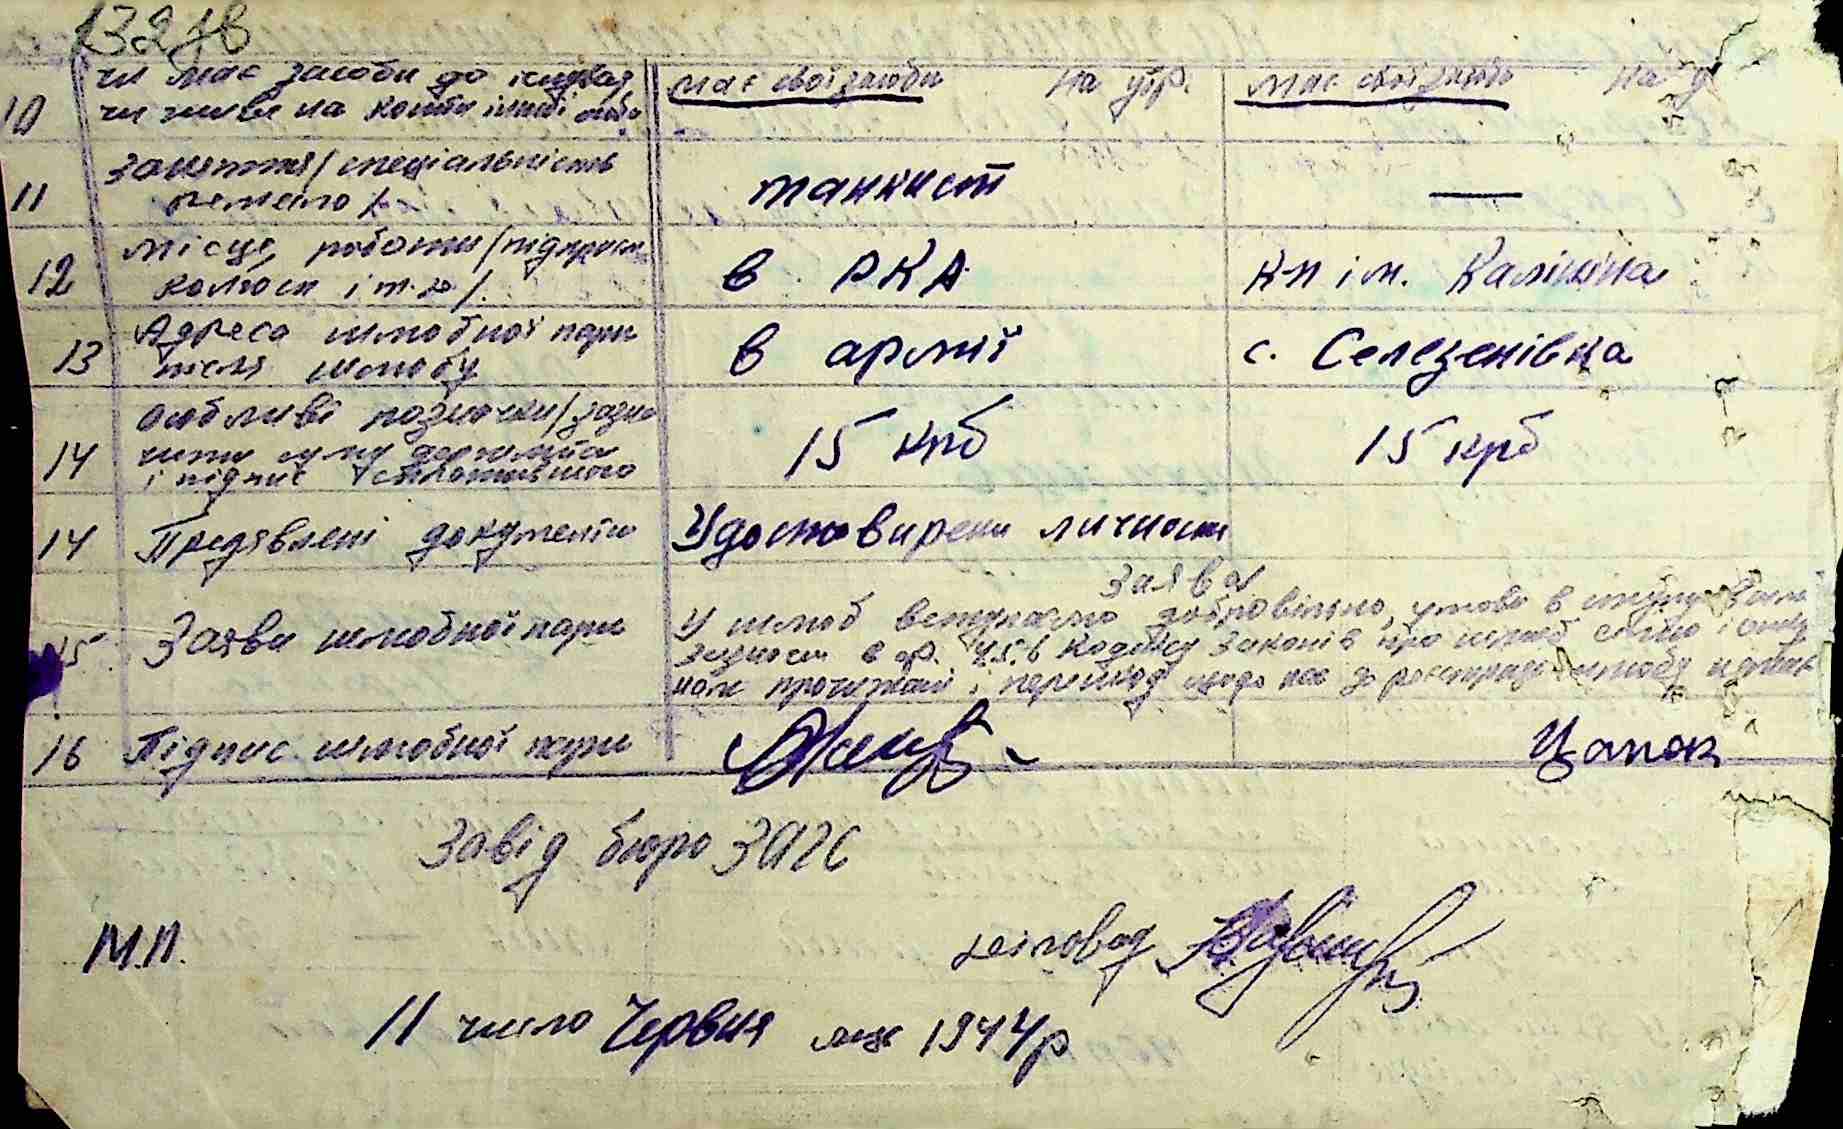 132
10 чи має засоби до існуван має свої засоби На утр. має свої засоби На у
чи живе на кошти іншої особи
11 Заняття/спеціальність танкист —
ремесло/
12 Місце роботи/підприєм в РКА кп ім. Калініна
колгосп і т.д./.
13 Адреса шлюбної пари в армії с. Селезенівка
після шлюбу
14 Особливі позначки/зазна 15 крб 15 крб
чити суму держмита
і підпис
14 Предявлені документи Удостовирени личности
Заява
15 Заява шлюбної пари У шлюб вступаємо добровільно, умови в
в ар. 4.5.6 Кодексу Законів про шлюб сім'ю і опіку
нам прочитані і перешкод щодо нас до реєстрації шлюбу немає
16 Підпис шлюбної пари Цапок
Завід бюро ЗАГС
М.П. діловод
11 число Червня міс 1944р